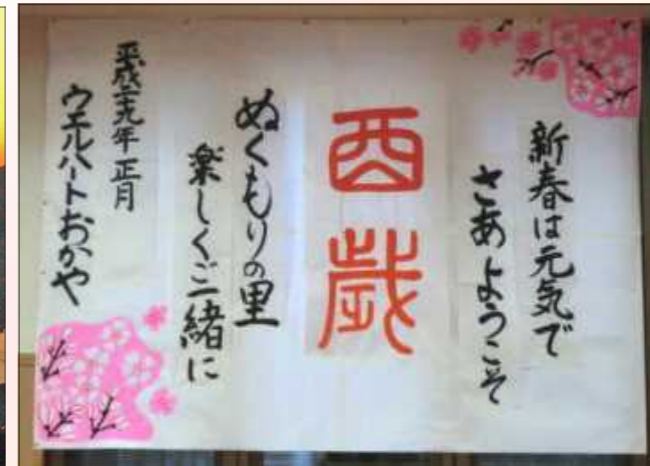 新春は元気で
さあようこそ
酉歳
ぬくもりの里
楽しくご一緒に
平成二十九年 正月
ウエルハートおかや